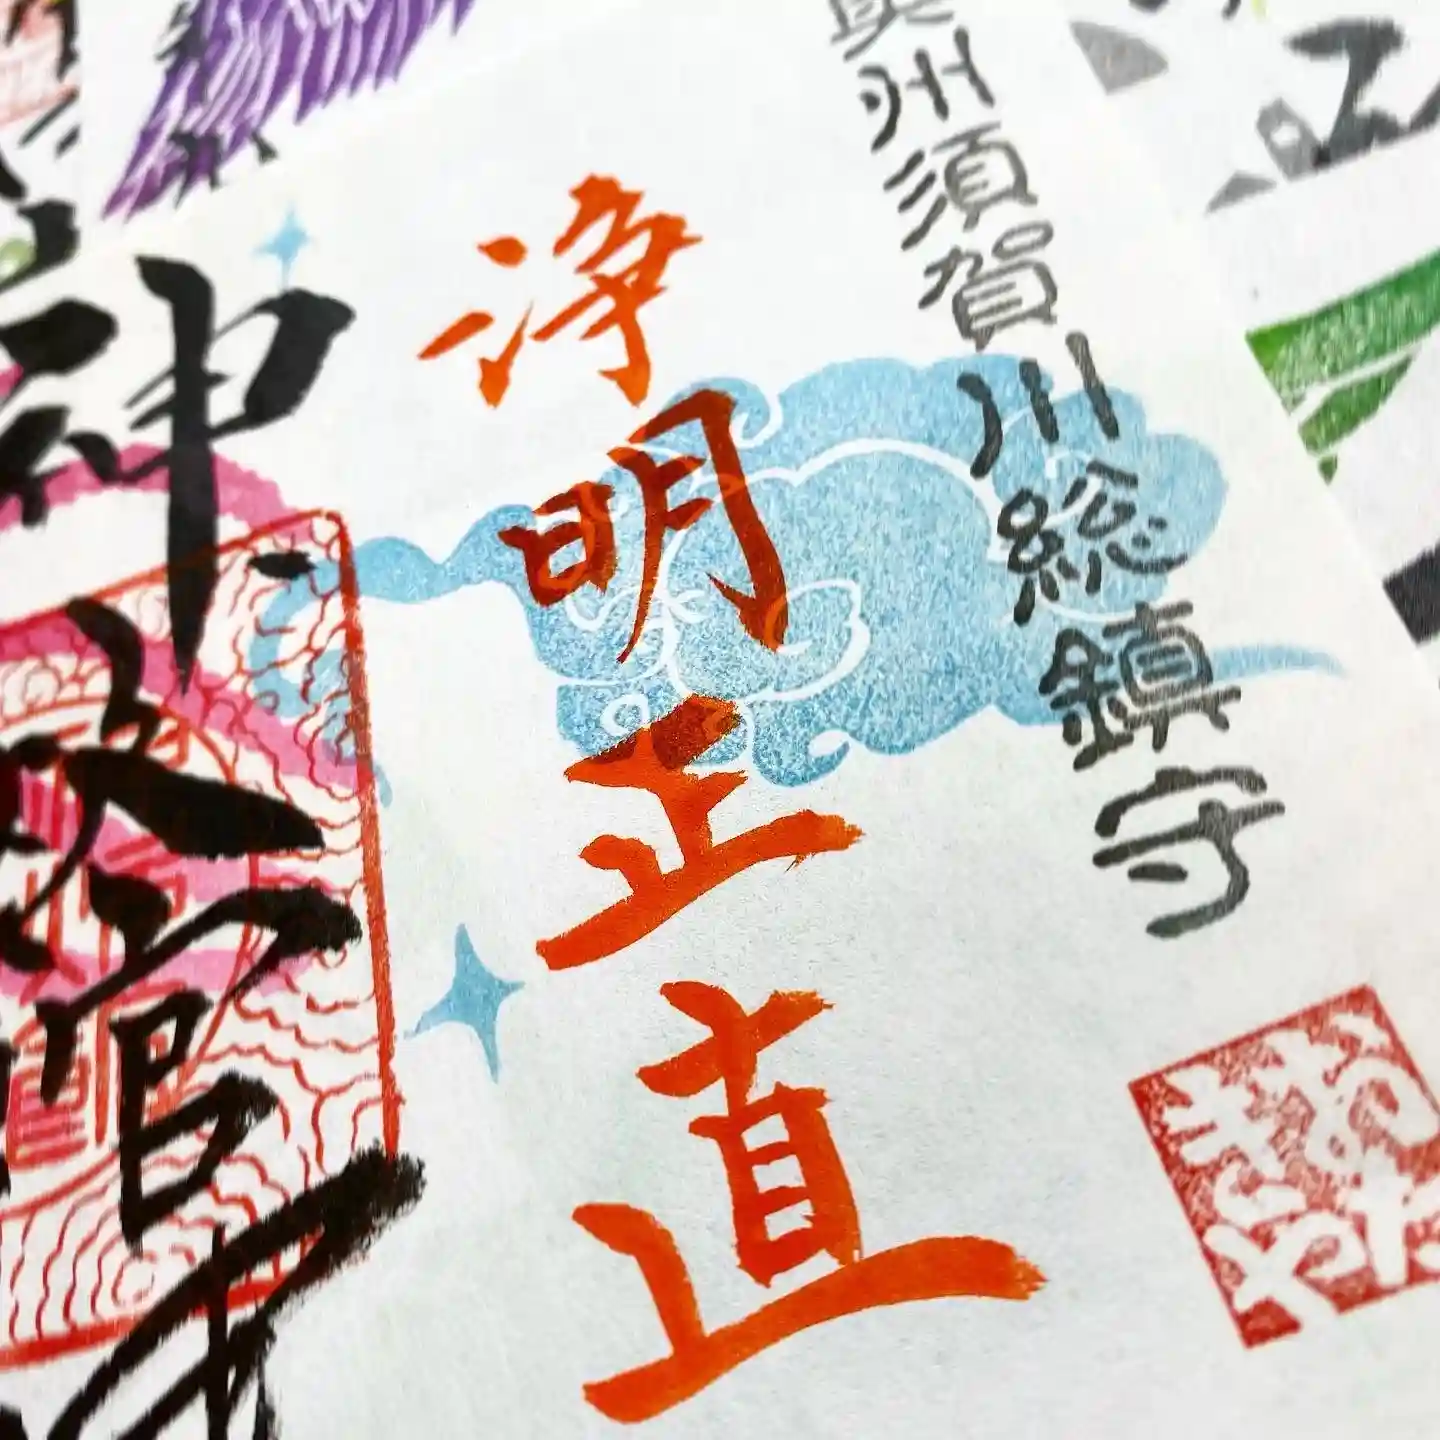 奥州須賀川総鎮守
浄明正直
神炊館